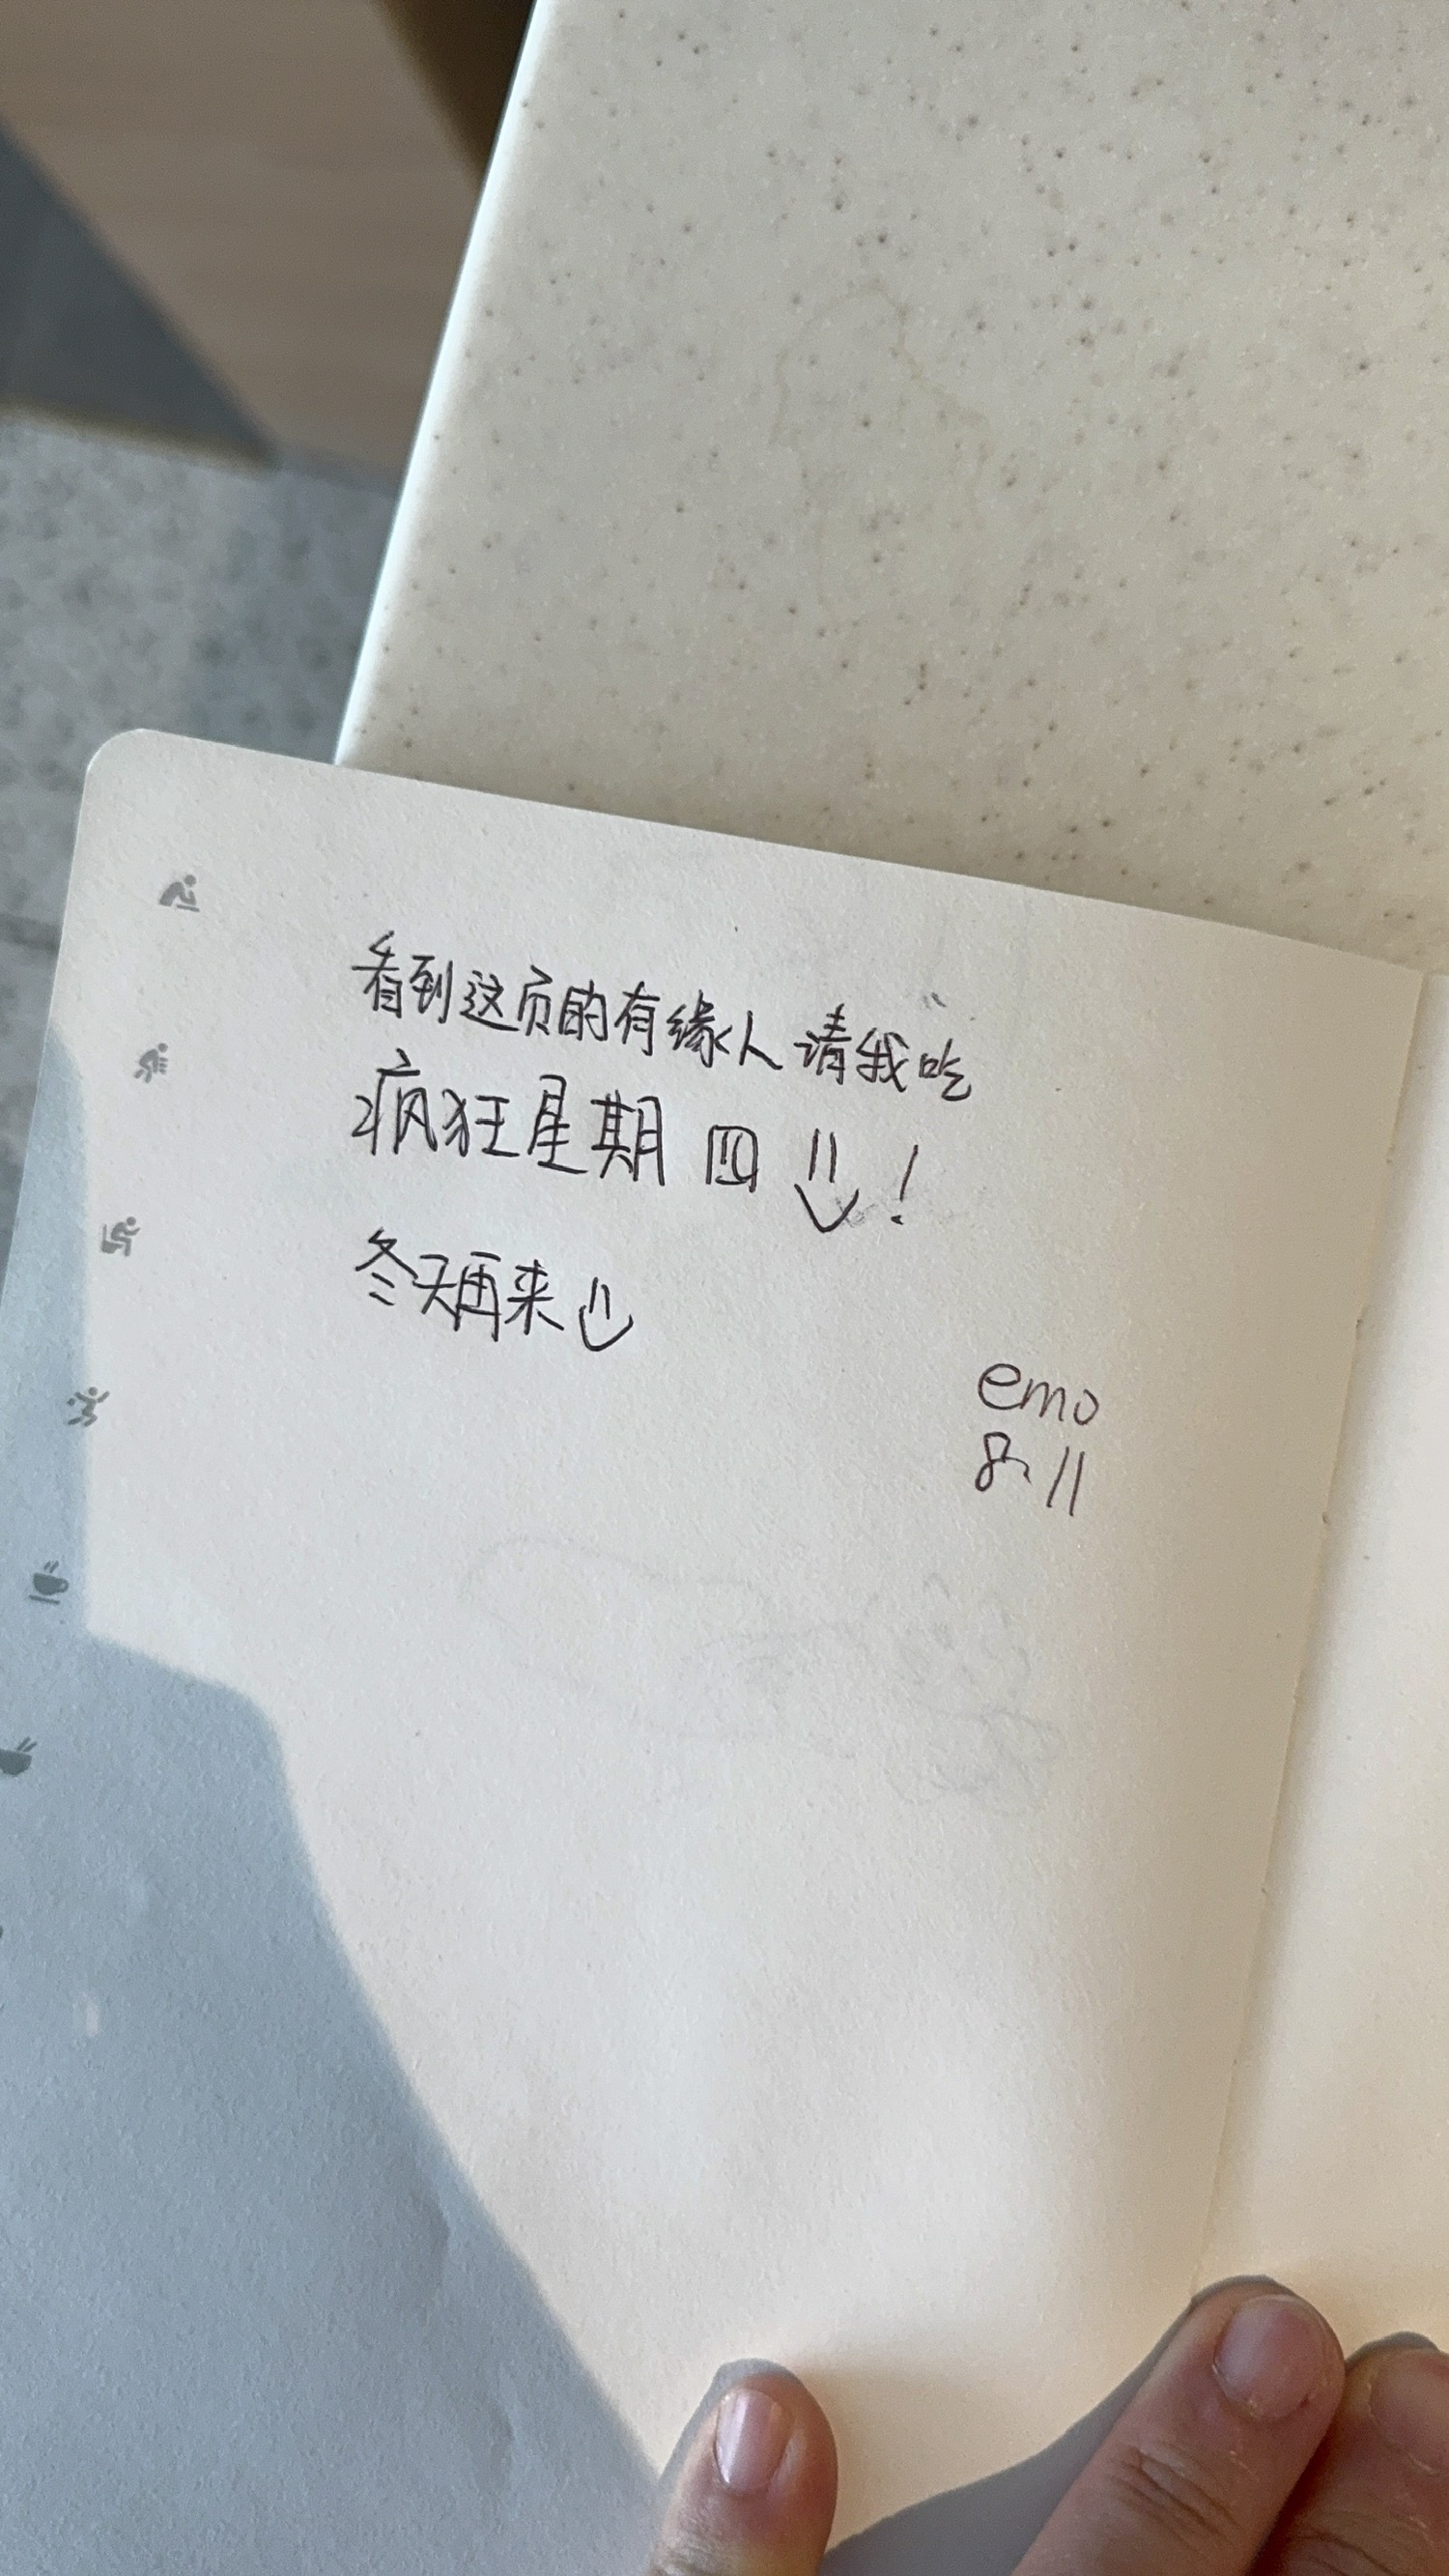 看到这页的有缘人请我吃
疯狂星期四!
冬天再来
emo
8.11